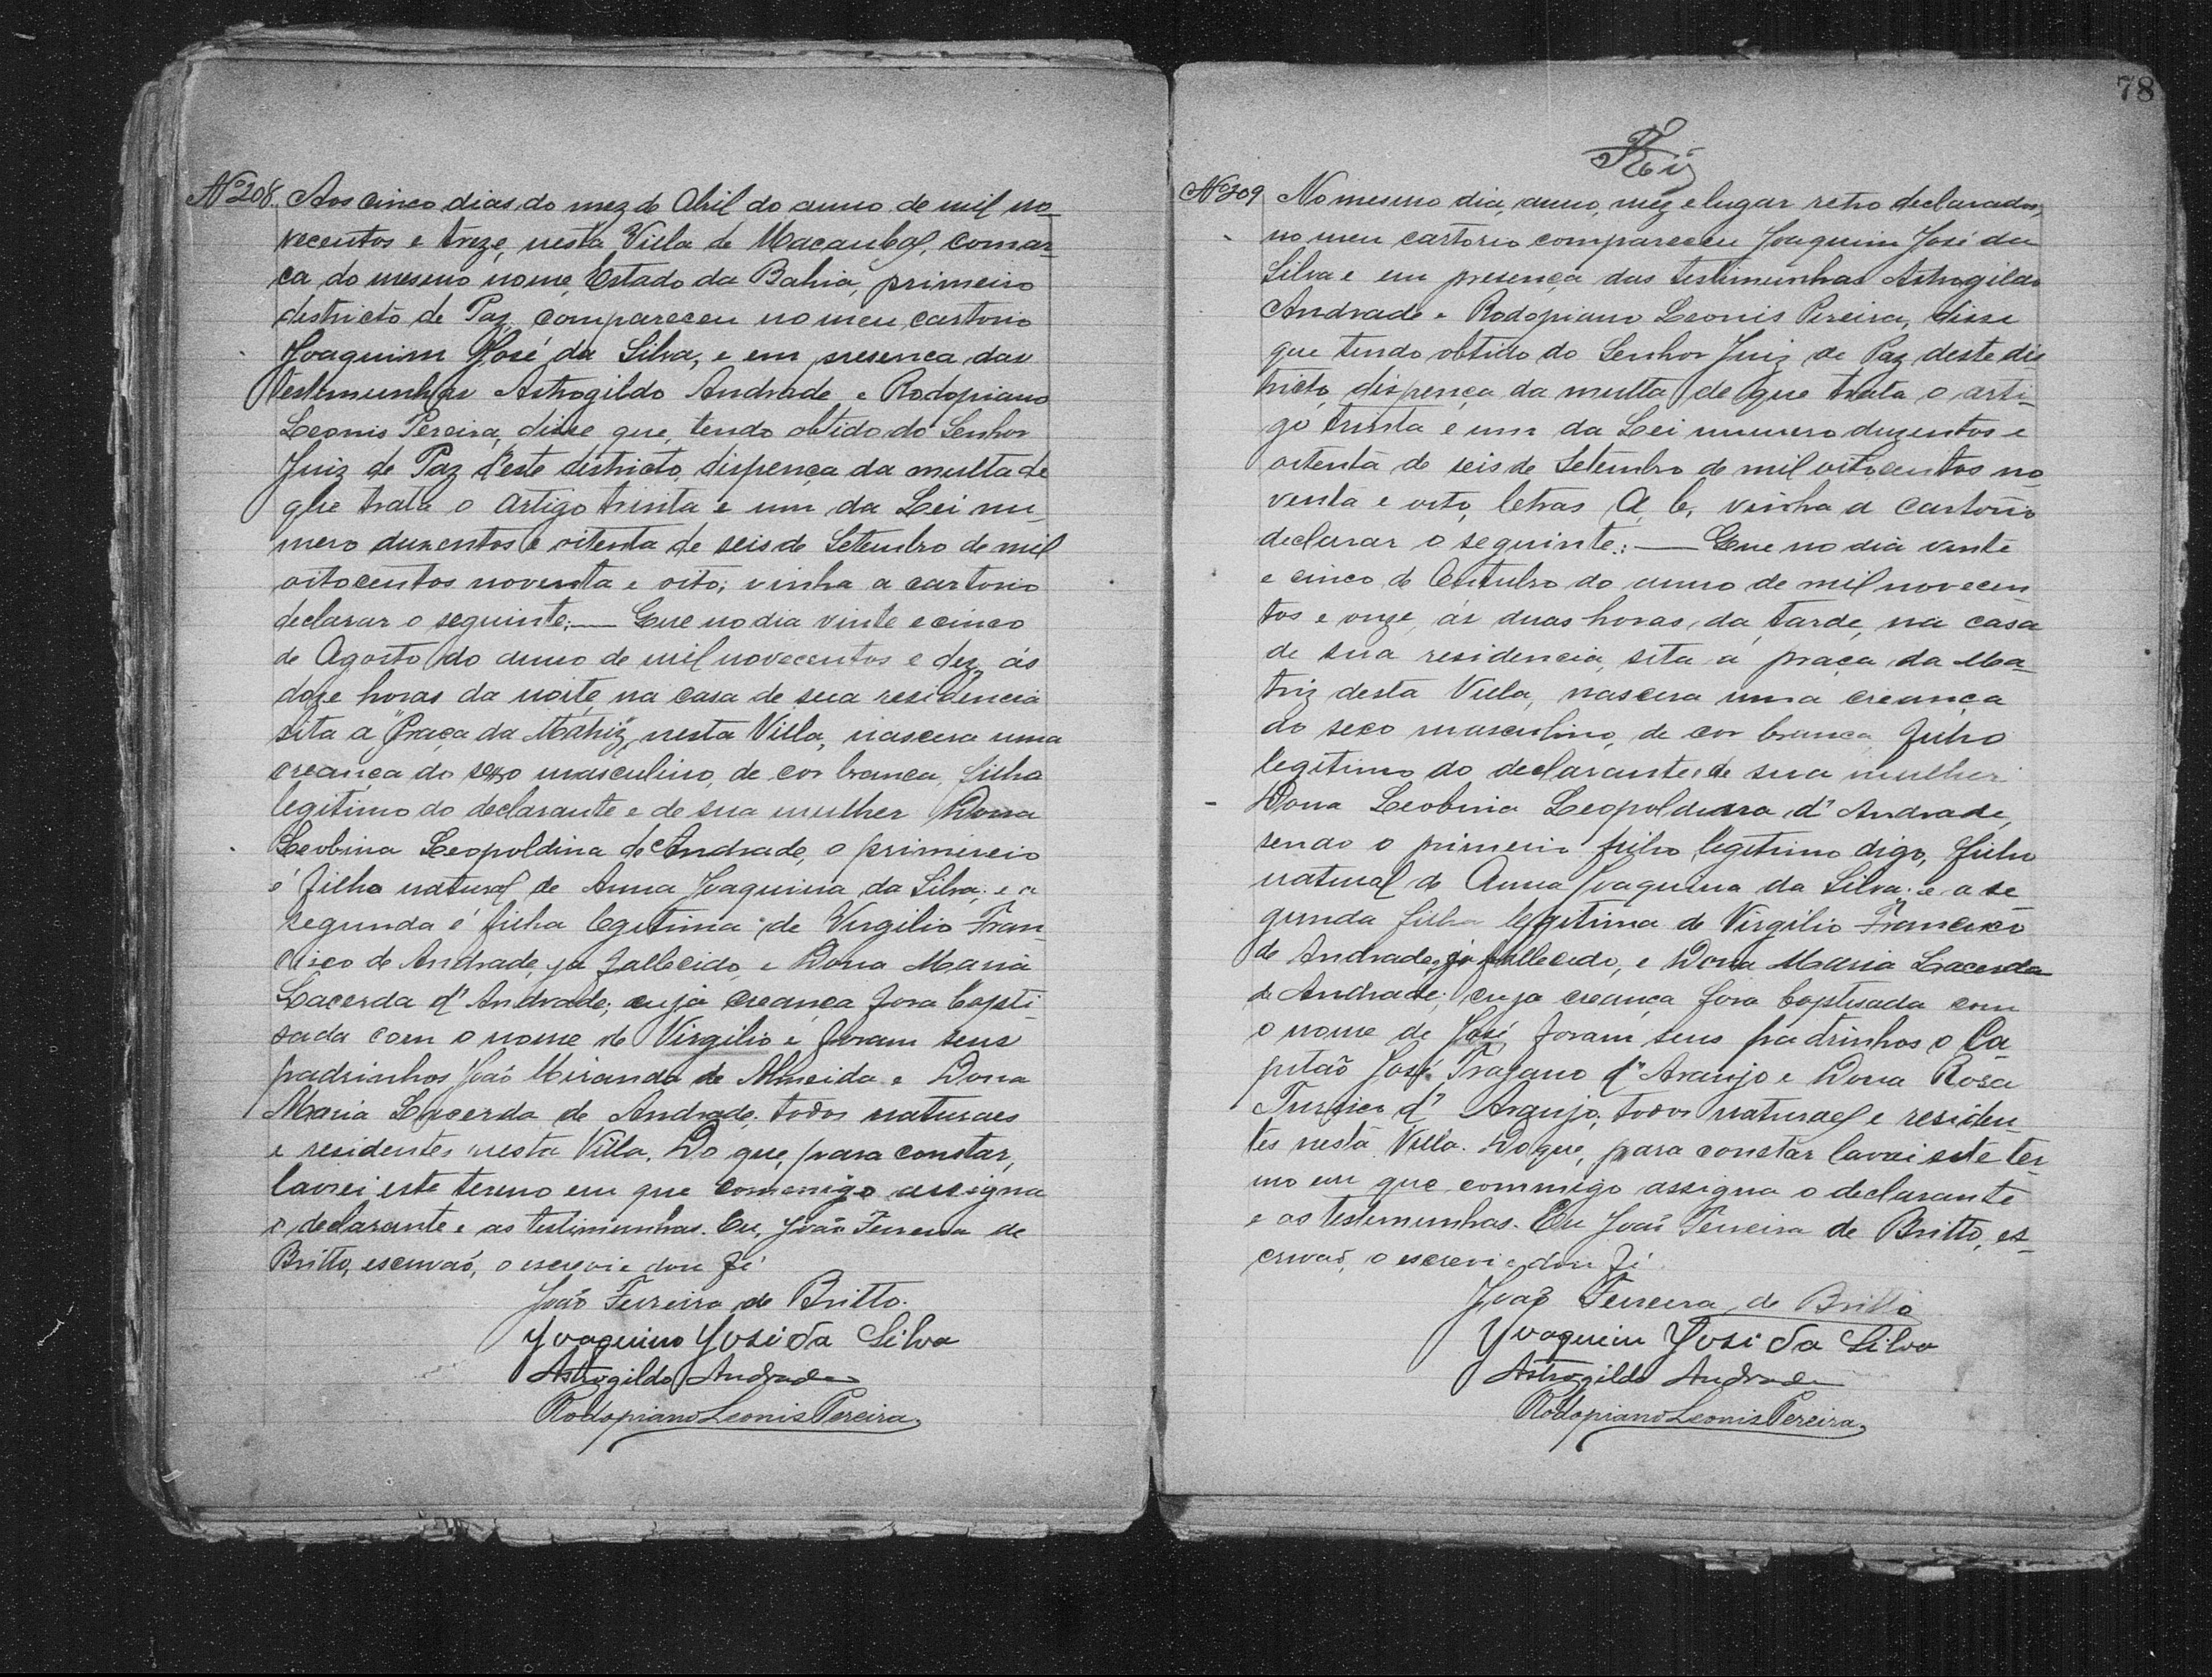 Nº 208. Aos cinco dias do mez de Abril do anno de mil no-
vecentos e treze, nesta Villa de Macaubas, comar-
ca do mesmo nome, Estado da Bahia, primeiro
districto de Paz, compareceu no meu cartorio
Joaquim José da Silva, e em presença das
testemunhas Astrogildo Andrade e Rodopiano
Leonis Pereira, disse que, tendo obtido do Senhor
Juiz de Paz d'este districto, dispença da multa de
que trata o artigo trinta e um da Lei nu-
mero duzentos e oitenta de seis de Setembro de mil
oitocentos noventa e oito; vinha a cartorio
declarar o seguinte: — Que no dia vinte e cinco
de Agosto do anno de mil novecentos e dez, ás
doze horas da noite, na casa de sua residencia
sita a "Praça da Matriz", nesta Villa, nascera uma
creança do sexo masculino, de cor branca, filho
legitimo do declarante e de sua mulher Dona
Leobina Leopoldina de Andrade, o primeireio
é filho natural de Anna Joaquina da Silva; e a
segunda é filha legitima de Virgilio Fran-
cisco de Andrade, já fallecido, e Dona Maria
Lacerda d'Andrade; cuja creança fora bapti-
sada com o nome de Virgilio e foram seus
padrinhos João Miranda de Almeida e Dona
Maria Lacerda de Andrade; todos naturaes
e residentes nesta Villa. Do que, para constar,
lavrei este termo em que commigo assigna
o declarante e as testimunhas. Eu, João Ferreira de
Britto, escrivaõ, o escrevi e dou fé
João Ferreira de Britto.
Joaquim José da Silva
Astrogildo Andrade
Rodopiano Leonis Pereira
78
Nº 209 No mesmo dia, anno, mez e lugar retro declarados,
no meu cartorio compareceu Joaquim José da
Silva e em presença das testemunhas Astrogildo
Andrade e Rodopiano Leonis Pereira, disse
que tendo obtido do Senhor Juiz de Paz deste dis
tricto, dispença da multa de que trata o arti-
go trinta e um da Lei numero duzentos e
oitenta de seis de Setembro de mil oitocentos no
venta e oito, letras A, b, vinha a cartorio
declarar o seguinte: — Que no dia vinte
e cinco de Outubro do anno de mil novecen
tos e onze, ás duas horas da tarde, na casa
de sua residencia, sita a praça da Ma-
triz desta Villa, nascera uma creança
do seco masculino, de cor branca, filho
legitimo do declarante e de sua mulher
Dona Leobina Leopoldina d'Andrade,
sendo o primeiro filho legitimo digo, filho
natural de Anna Joaquina da Silva; e a se
gunda filha legitima de Virgilio Francisco
de Andrade, já fallecido, e Dona Maria Lacerda
de Andrade; cuja creança fora baptisada com
o nome de José foram seus padrinhos o Ca-
pitão José Trajano d'Araujo e Dona Rosa
d'Araujo; todos naturaes e residen
tes nesta Villa. Do que, para constar lavrei este ter
mo em que commigo assigna o declarante
e as testemunhas. Eu João Ferreira de Britto, es-
crivaõ, o escrevi e dou fé.
João Ferreira de Britto
Joaquim José da Silva
Astrogildo Andrade
Rodopiano Leonis Pereira